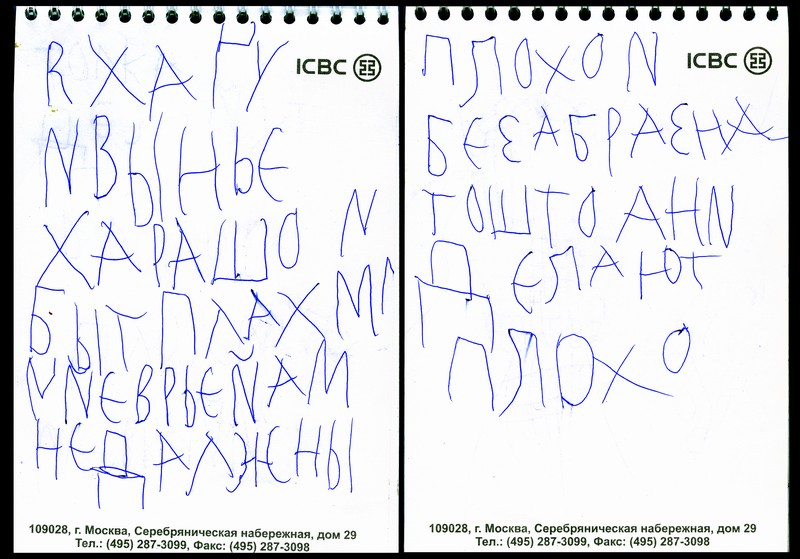 ICBC
Я ХАЧУ
И ВЫНЬЕ
ХАРАШО И
БЫТ ПЛАХИМ
ИИЕВРЬЕЙАМ
НЕДАЛЖЕНЫ
109028, г. Москва, Серебряническая набережная, дом 29
Тел.: (495) 287-3099, Факс: (495) 287-3098
ICBC
ПЛОХО И
БЕЗАБРАЗНА
ТОШТО АНИ
ДЕЛАЮТ
ПЛОХО
109028, г. Москва, Серебряническая набережная, дом 29
Тел.: (495) 287-3099, Факс: (495) 287-3098